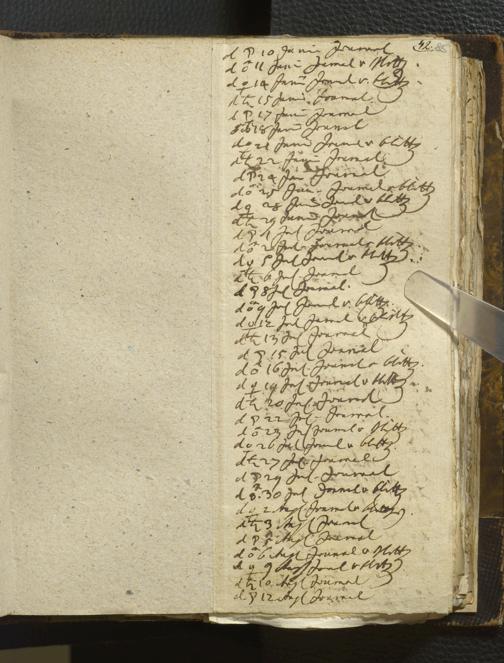 42.
d ☿ 10 Junii Journal
d ♂ 11 Junii Journal v blitt
d ♀ 14 Junii Journal v. blitt
d ♄ 15 Junii Journal
d 17 Junii Journal
18 Junii Journal
d 21 Junii Journal v blitt
d ♄ 22 Junii Journal
d 24 Jun Journal
d ♂ 25 Jun. Journal v blitt
d ♀ 28 Jun Journal v blitt
d ♄ 29 Junii Journal
d 1 Jul Journal
d ♂ 2 Jul Journal v blitt
d ♀ 5 Jul Journal v blitt
d ♄ 6 Jul Journal
d 8 Jul Journal.
d ♂ 9 Jul Journal v. blitt
d ♀ 12 Jul Journal v blitt
d ♄ 13 Jul Journal
d 15 Jul Journal
d ♂ 16 Jul Journal v blitt
d ♀ 19 Jul Journal v blitt
d ♄ 20 Jul Journal
d 22 Jul Journal
d ♂ 23 Jul Journal v blitt
d ♀ 26 Jul Journal v blitt
d ♄ 27 Jul Journal
d 29 Jul Journal
d 30 Jul Journal v blitt
d 2 Augl Journal v blitt
d ♄ 3 Augl Journal
d 5 Augl Journal
d ♂ 6 Augl Journal v blitt
d ♀ 9 Augl Journal v blitt
d ♄ 10 Augl Journal
d 12 Augl Journal